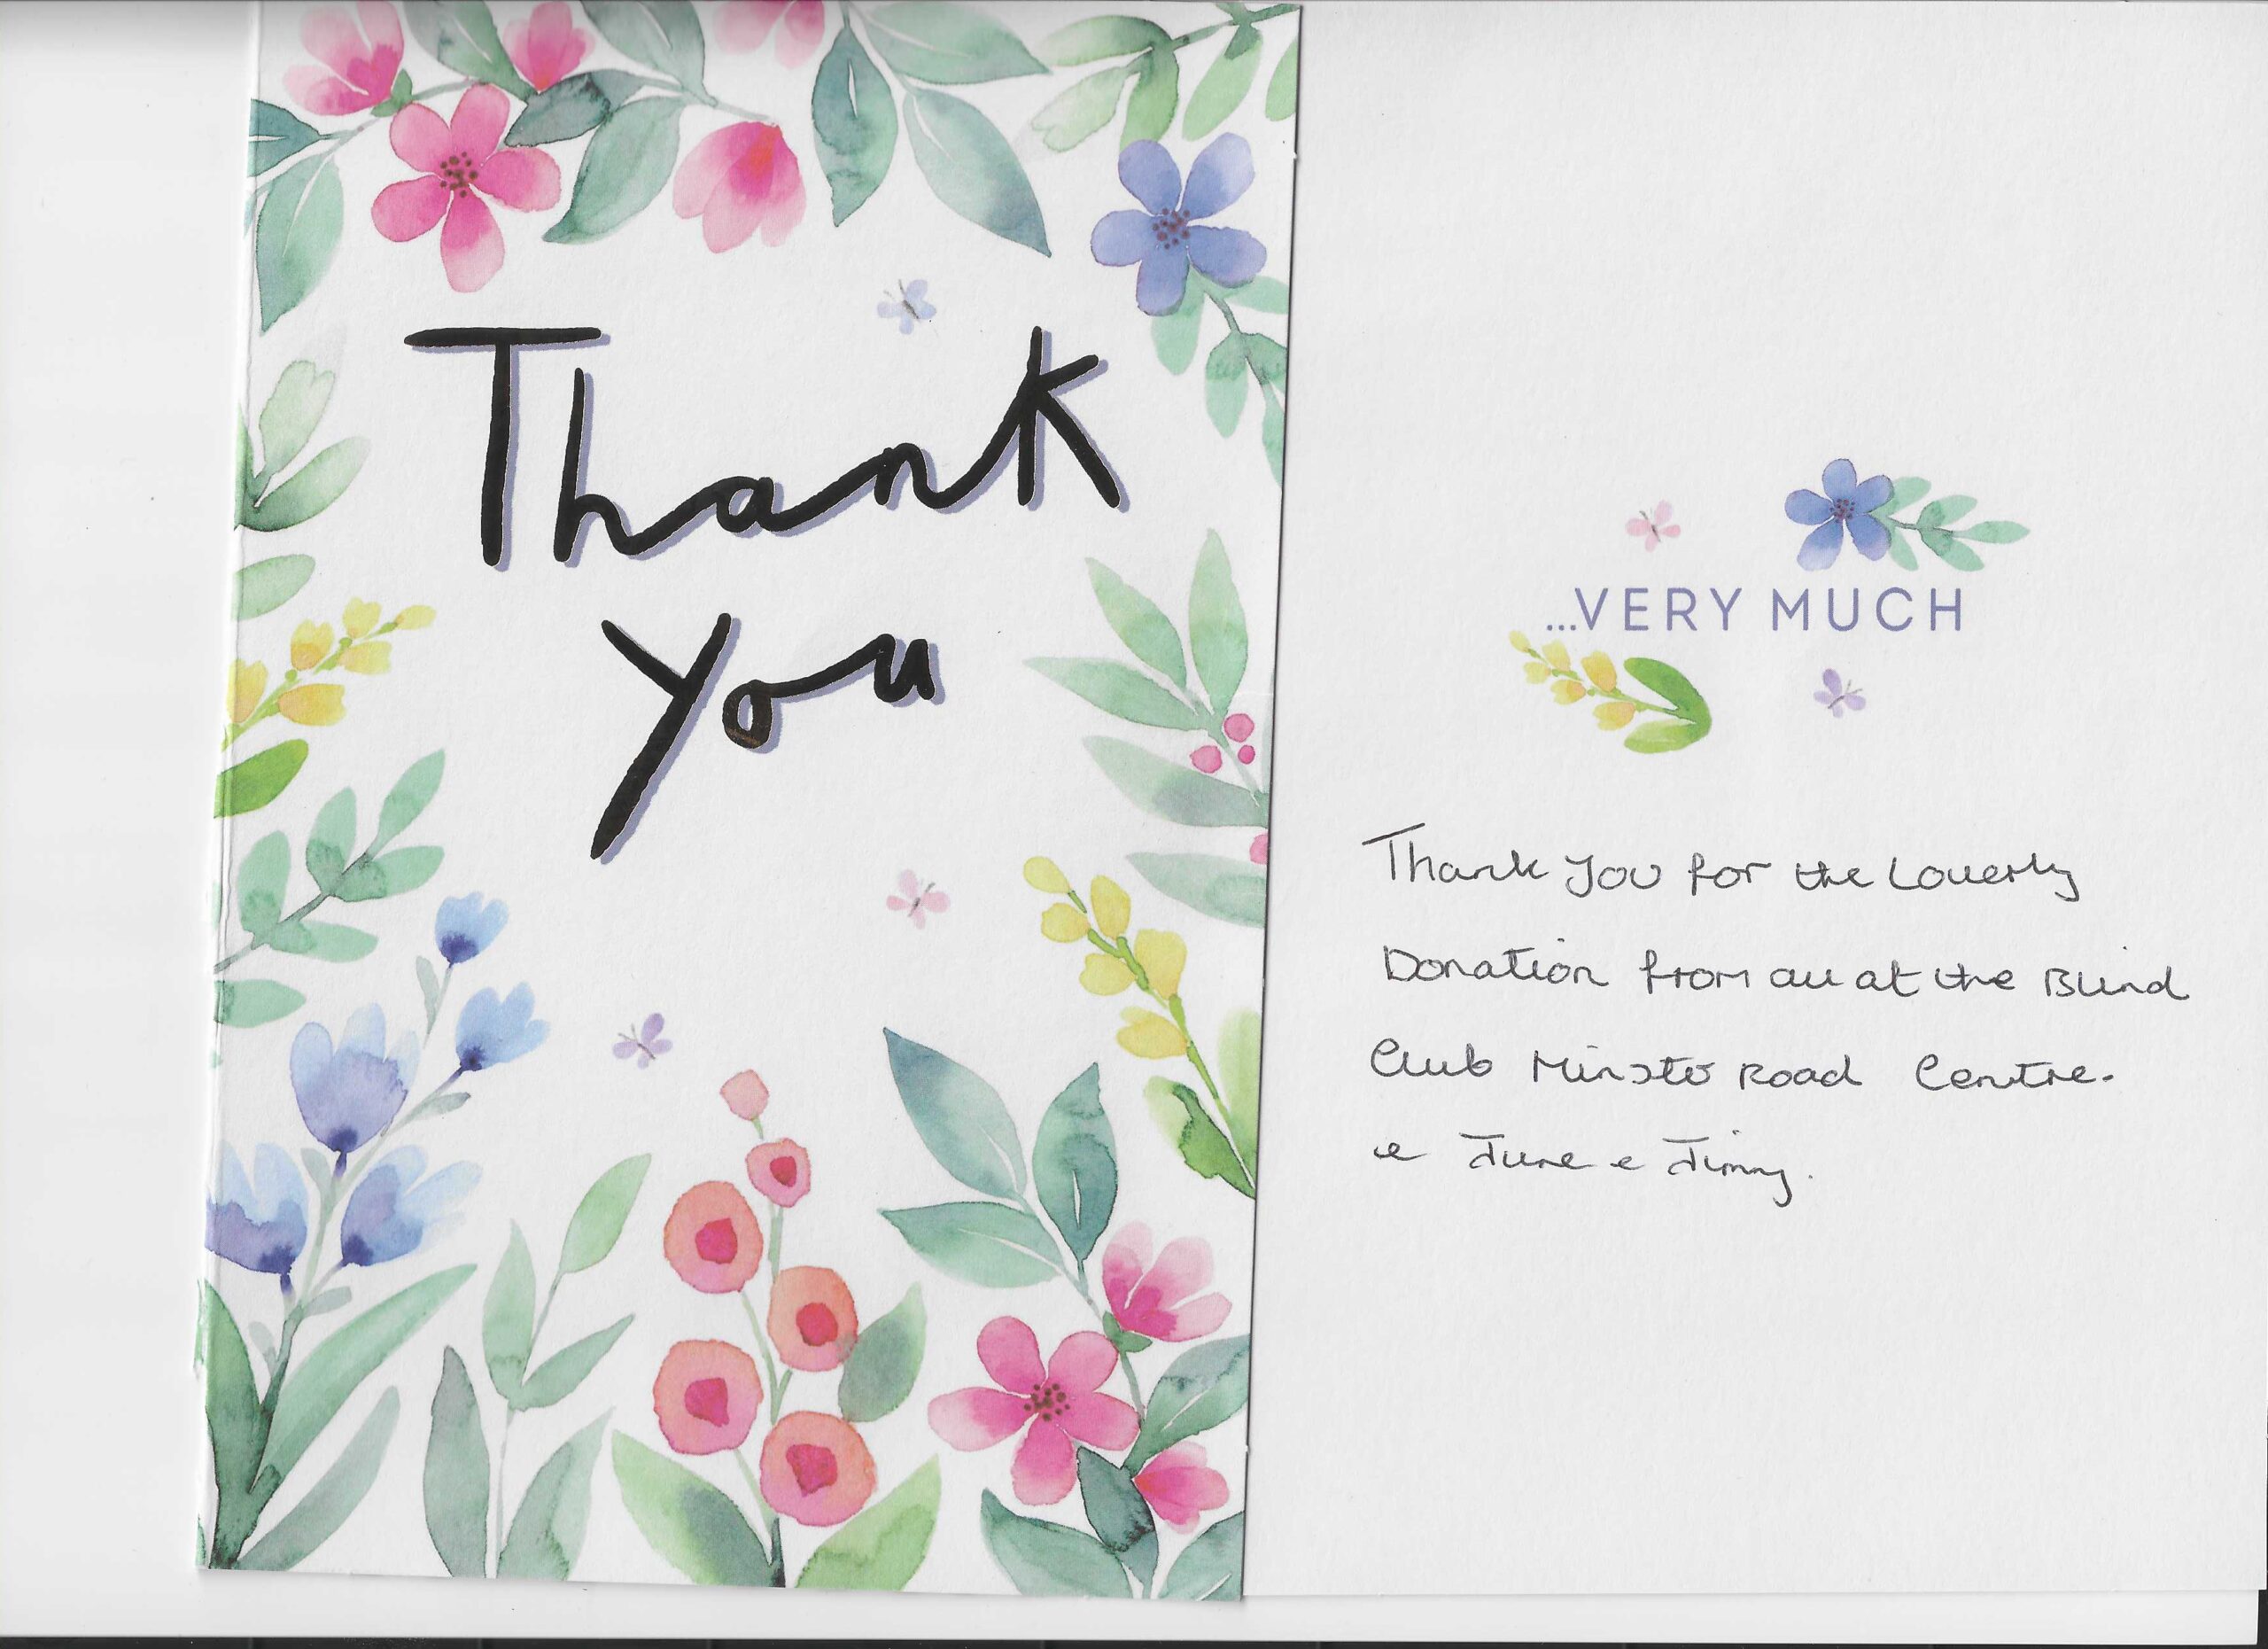 Thank
you
...VERY MUCH
Thank you for the Loverly
Donation from all at the Blind
Club Minster Road Centre.
e June e Jimmy.